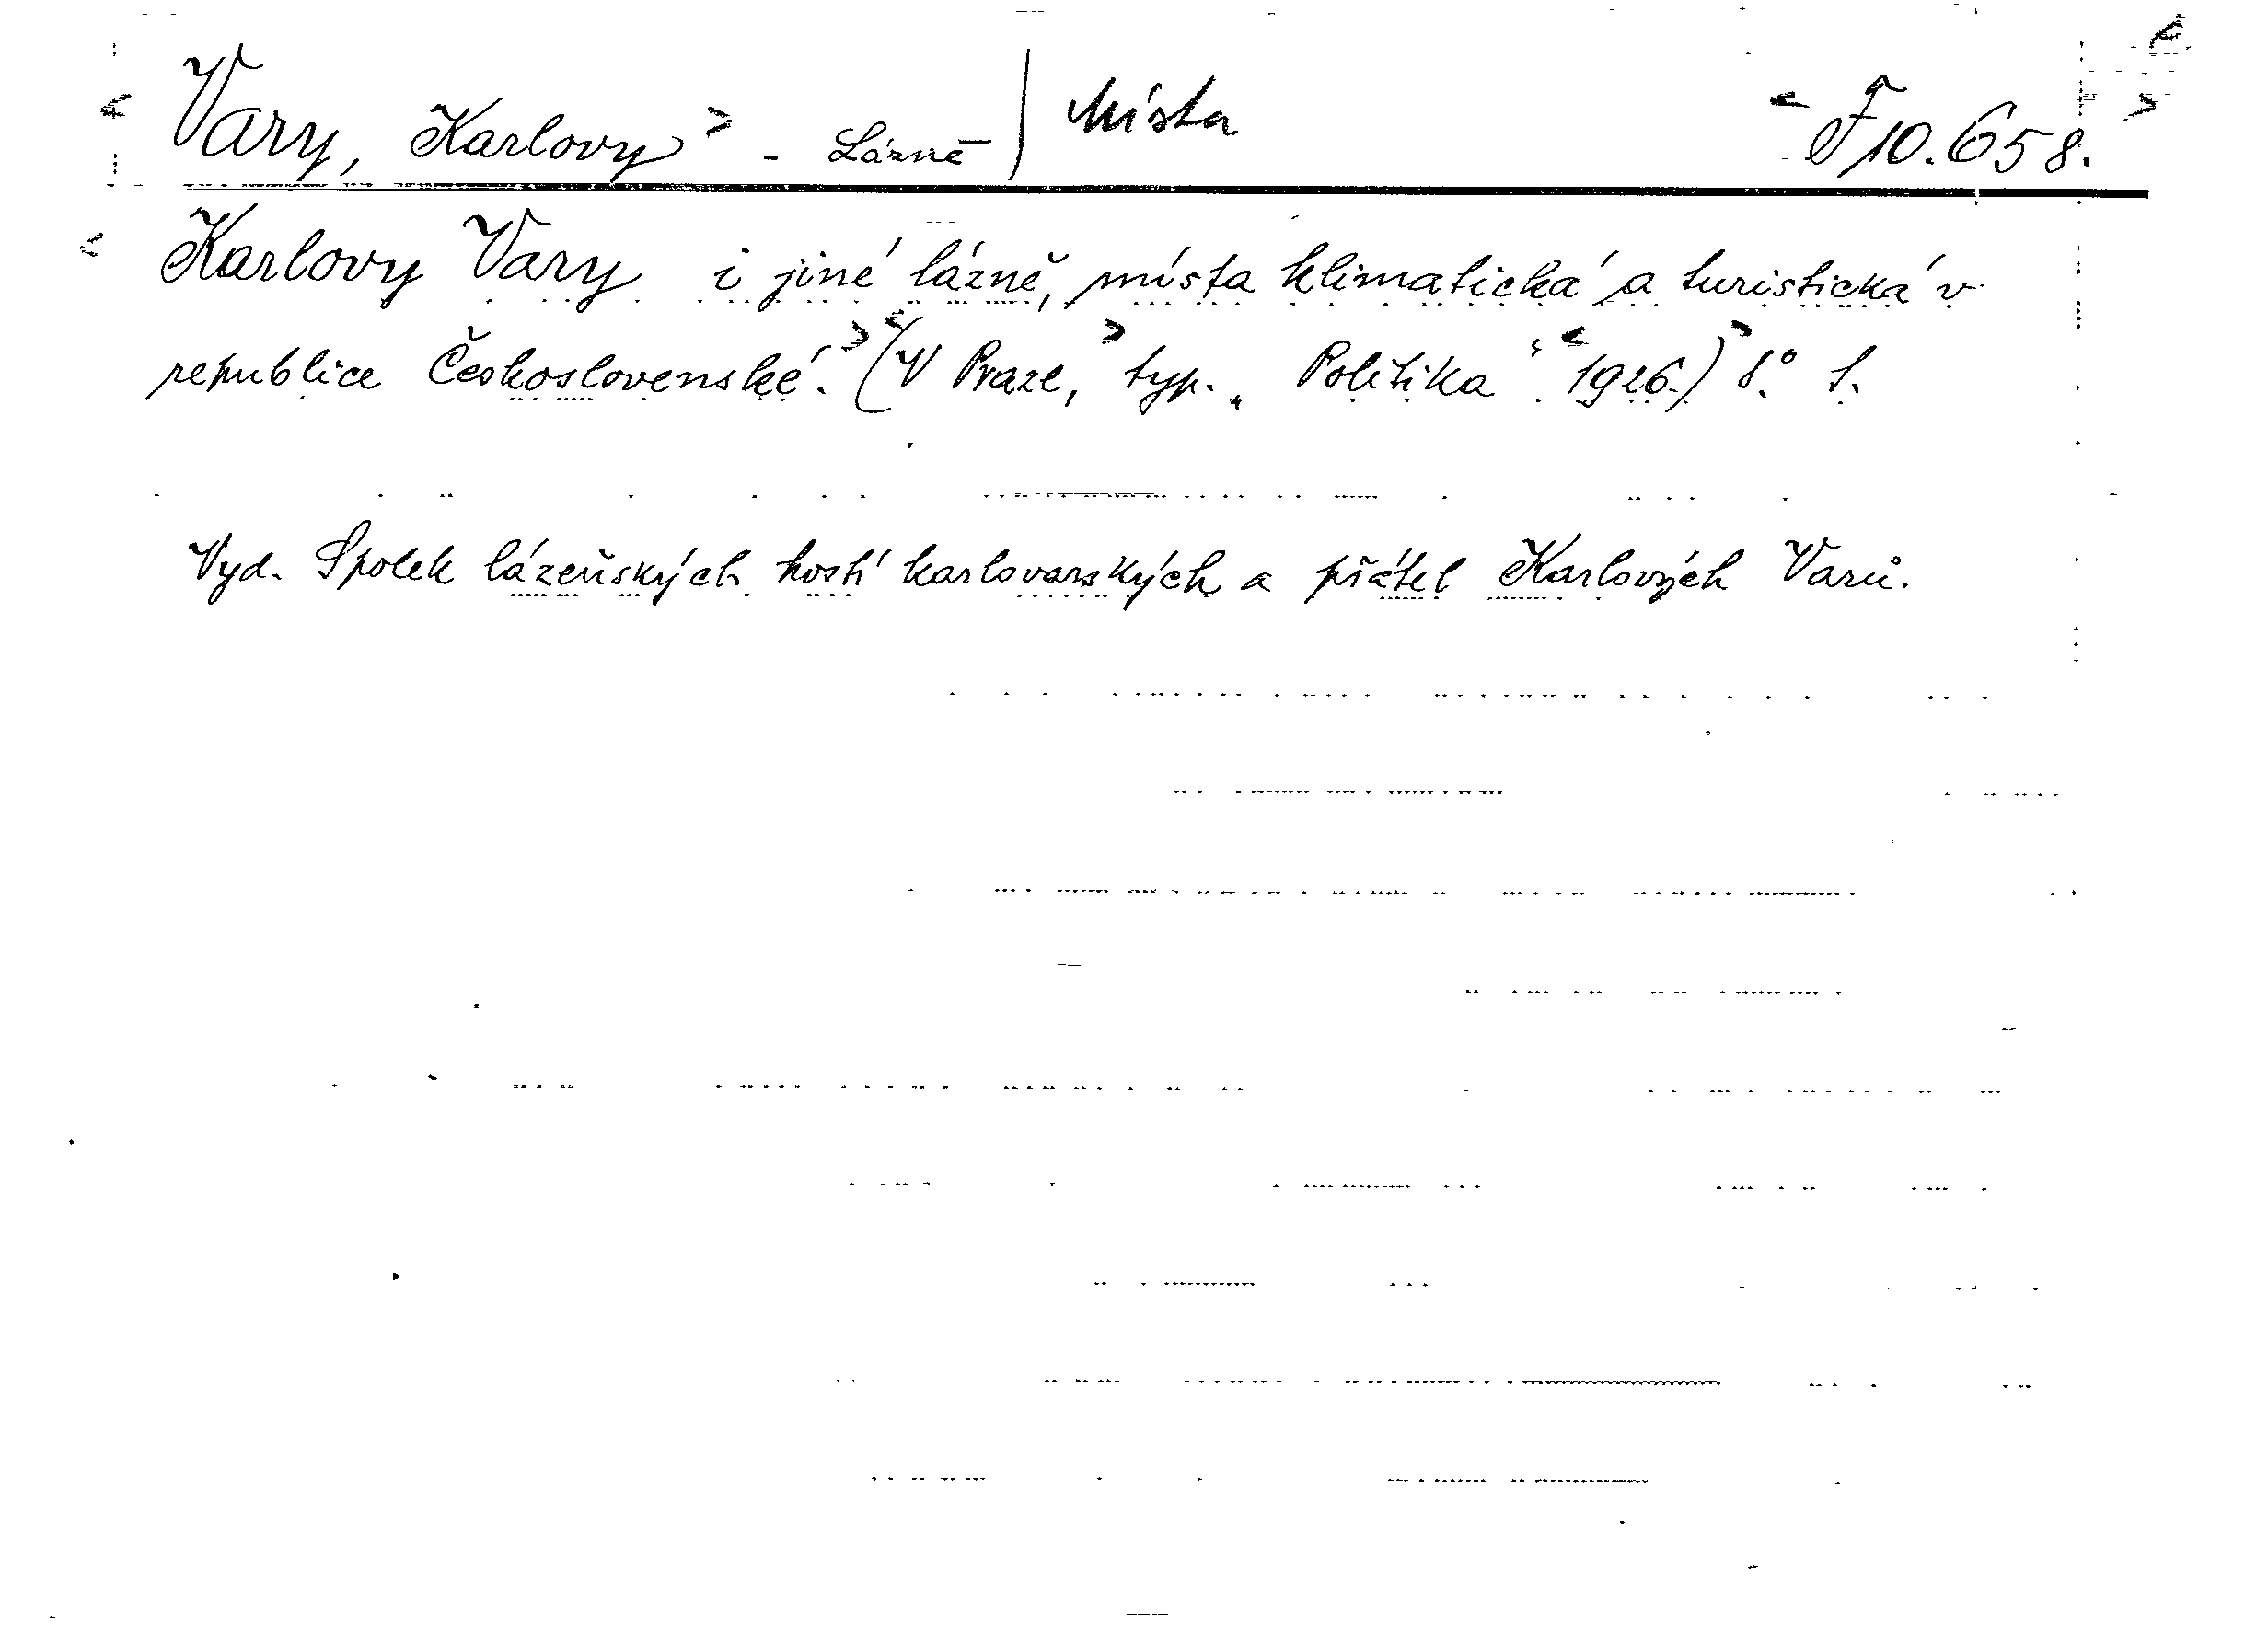 < Vary, Karlovy > - Lázně / Místa < F 10.658. >
< Karlovy Vary i jiné lázně, místa klimatická a turistická v
republice Československé. > < (V Praze, > typ. „Politika“ < 1926.) > 8.° 1.
Vyd. Spolek lázeňských hostí karlovarských a přátel Karlových Varů.